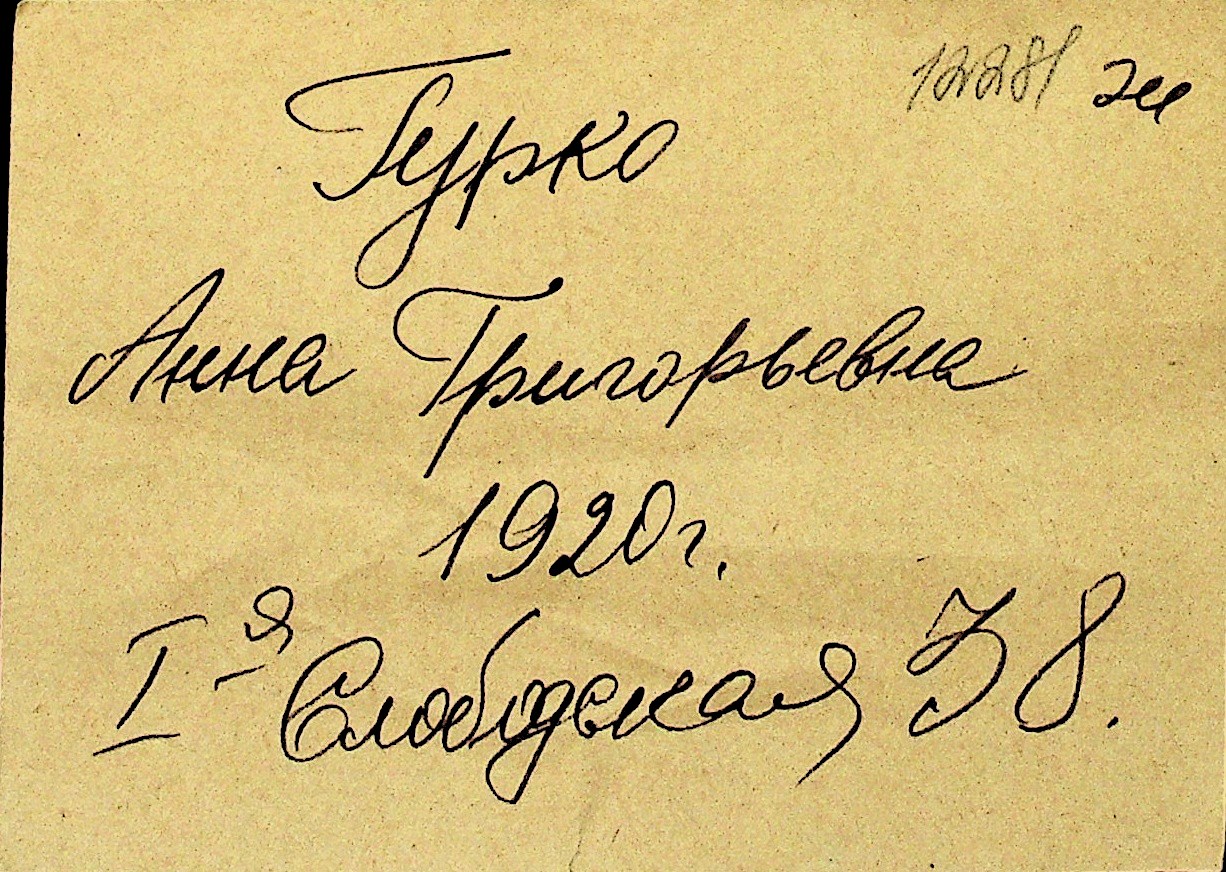 12281 ж
Гурко
Анна Григорьевна
1920 г.
Iя Слободская 38.